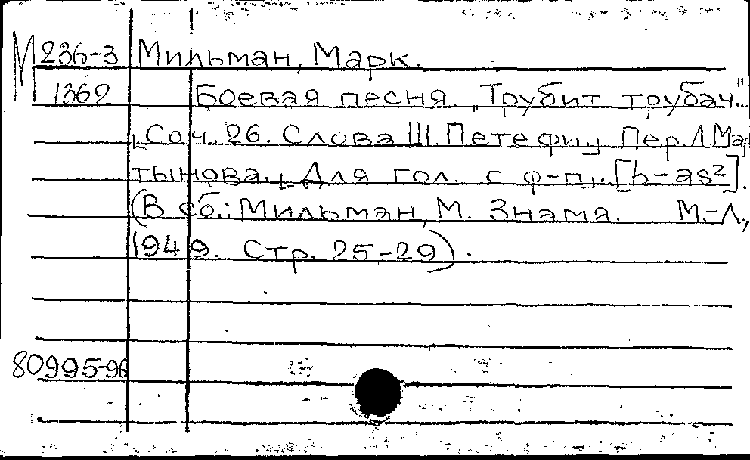 М 236-3 Мильман, Марк.
1362 Боевая песня „Трубит трубач".
Соч. 26. Слова Ш. Петефи, Пер. Л. Мар
тынова. Для гол. с ф-п. [h-as²].
(В сб.: Мильман, М. Знамя. М.-Л.,
1949. Стр. 25-29).
80995-96